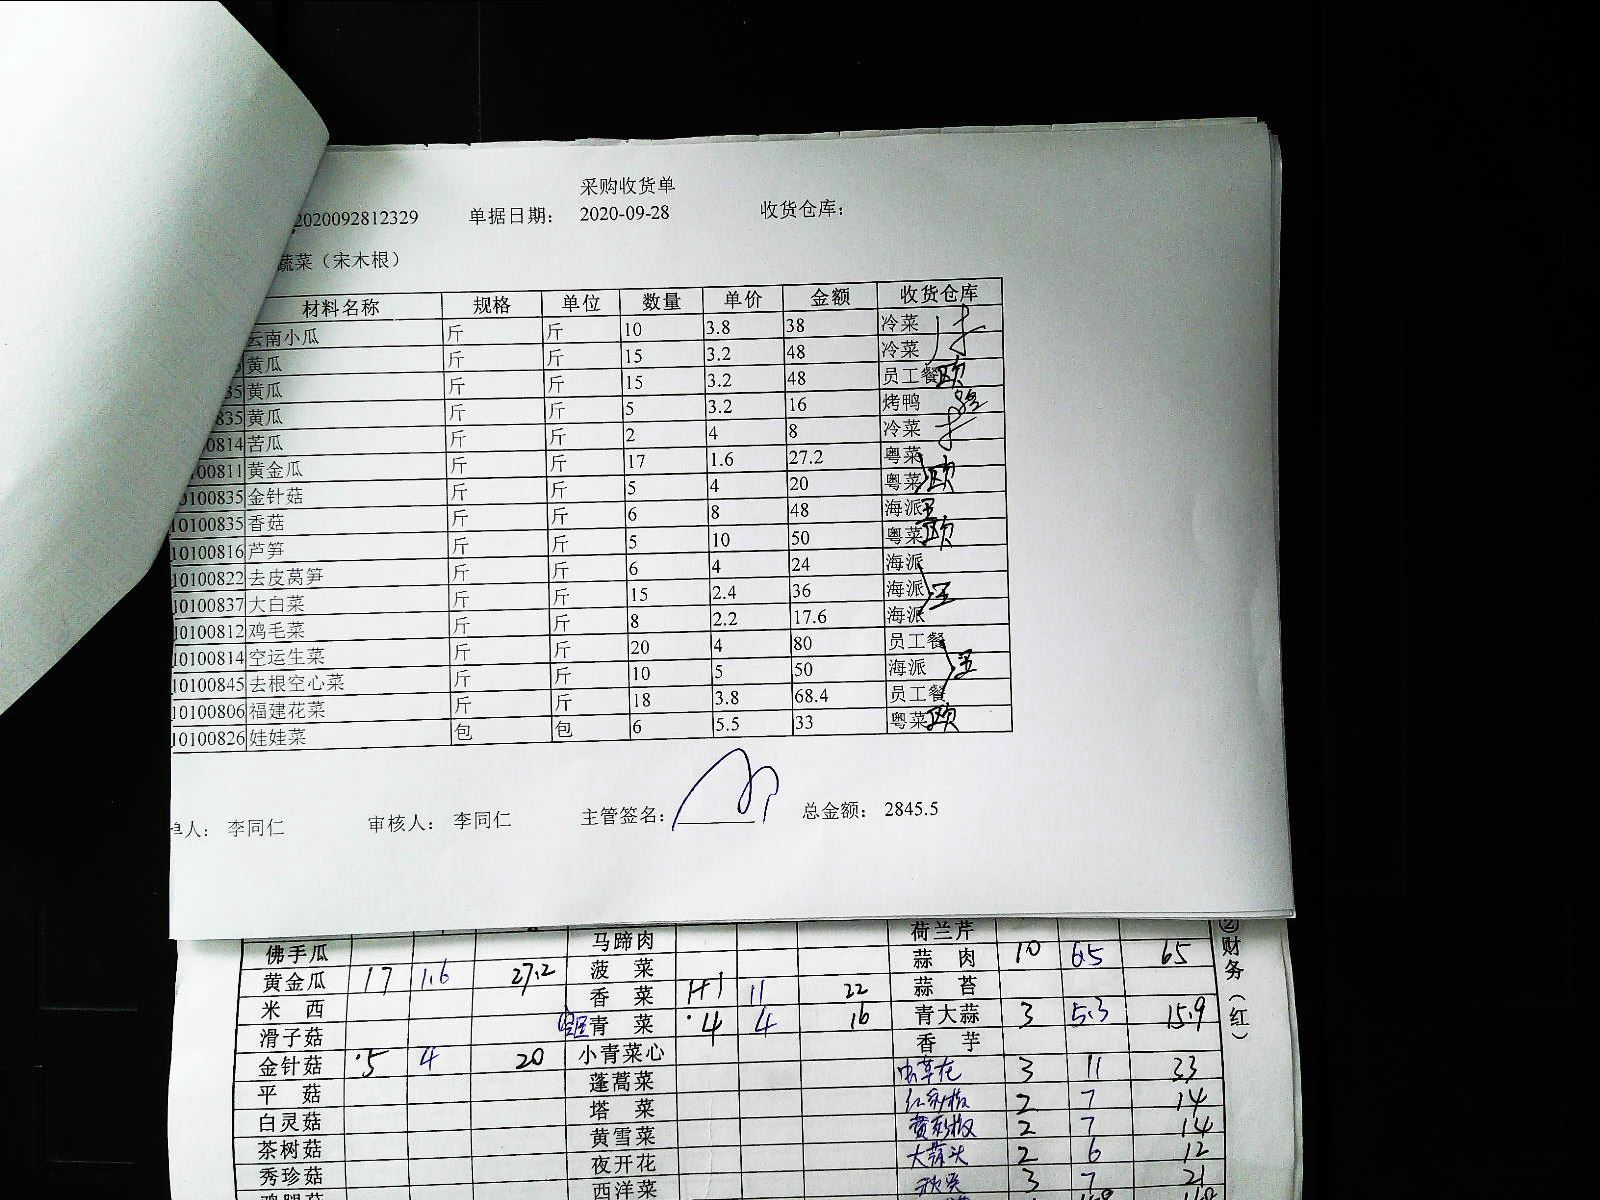 采购收货单
2020092812329 单据日期： 2020-09-28 收货仓库：
蔬菜（宋木根）
材料名称 规格 单位 数量 单价 金额 收货仓库
云南小瓜 斤 斤 10 3.8 38 冷菜
黄瓜 斤 斤 15 3.2 48 冷菜
35 黄瓜 斤 斤 15 3.2 48 员工餐 欧
835 黄瓜 斤 斤 5 3.2 16 烤鸭
00814 苦瓜 斤 斤 2 4 8 冷菜
100811 黄金瓜 斤 斤 17 1.6 27.2 粤菜
0100835 金针菇 斤 斤 5 4 20 粤菜 欧
10100835 香菇 斤 斤 6 8 48 海派 王
10100816 芦笋 斤 斤 5 10 50 粤菜 欧
10100822 去皮莴笋 斤 斤 6 4 24 海派
10100837 大白菜 斤 斤 15 2.4 36 海派 王
10100812 鸡毛菜 斤 斤 8 2.2 17.6 海派
10100814 空运生菜 斤 斤 20 4 80 员工餐
10100845 去根空心菜 斤 斤 10 5 50 海派 王
10100806 福建花菜 斤 斤 18 3.8 68.4 员工餐
10100826 娃娃菜 包 包 6 5.5 33 粤菜 欧
单人： 李同仁 审核人： 李同仁 主管签名： 总金额： 2845.5
佛手瓜 马蹄肉 荷兰芹
黄金瓜 17 1.6 27.2 菠菜 蒜肉 10 6.5 65
米西 香菜 1+1 11 22 蒜苔
滑子菇 青菜 4 4 16 青大蒜 3 5.3 15.9
金针菇 5 4 20 小青菜心 香芋
平菇 蓬蒿菜 虫草花 3 11 33
白灵菇 塔菜 红彩椒 2 7 14
茶树菇 黄雪菜 黄彩椒 2 7 14
秀珍菇 夜开花 大蒜头 2 6 12
西洋菜 秋葵 3 7 21
②财务（红）